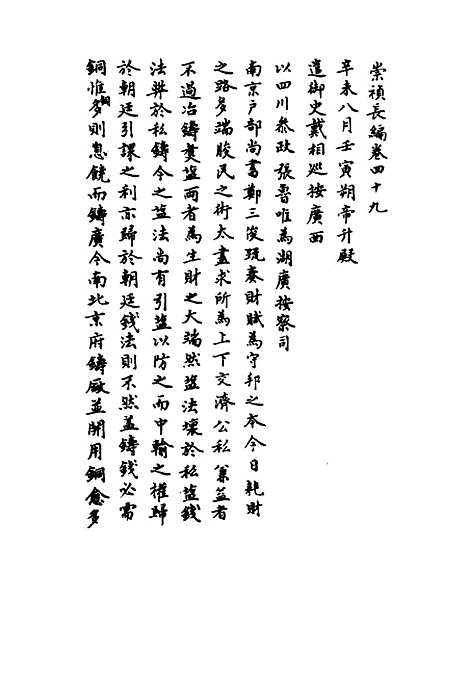 崇禎長編卷四十九
辛未八月壬寅朔帝升殿
遣御史戴相巡按廣西
以四川叅政張魯唯為湖廣按察司
南京戶部尚書鄭三俊疏奏財賦為守邦之本今日耗財
之路多端朘民之術太盡求所為上下交濟公私兼益者
不過冶鑄煑鹽兩者為生財之大端然鹽法壞於私鹽錢
法弊於私鑄令之鹽法尚有引鹽以防之而中輸之權歸
於朝廷引課之利亦歸於朝廷錢法則不然盖鑄錢必需
銅惟銅多則息饒而鑄廣今南北京府鑄厰並開用銅愈多